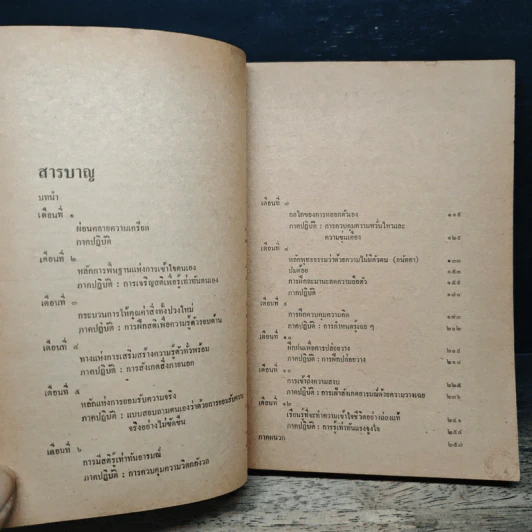 สารบาญ
บทนำ
เดือนที่ ๑
ผ่อนคลายความเครียด
ภาคปฏิบัติ
เดือนที่ ๒
หลักการพื้นฐานแห่งการเข้าใจตนเอง
ภาคปฏิบัติ : การเจริญสติเพื่อรู้เท่าทันตนเอง
เดือนที่ ๓
กระบวนการให้คุณค่าสิ่งทั้งปวงใหม่
ภาคปฏิบัติ : การฝึกสติเพื่อความรู้ตัวรอบด้าน
เดือนที่ ๔
ทางแห่งการเสริมสร้างความรู้ตัวทั่วพร้อม
ภาคปฏิบัติ : การสังเกตสิ่งภายนอก
เดือนที่ ๕
หลักแห่งการยอมรับความจริง
ภาคปฏิบัติ : แบบสอบถามตนเองว่าด้วยการยอมรับความ
จริงอย่างไม่ขัดขืน
เดือนที่ ๖
การมีสติรู้เท่าทันอารมณ์
ภาคปฏิบัติ : การควบคุมความวิตกกังวล
เดือนที่ ๗
กลไกของการหลอกตัวเอง ๑๑๕
ภาคปฏิบัติ : การควบคุมความหวั่นไหวและ
ความขุ่นเคือง ๑๒๕
เดือนที่ ๘
หลักพุทธธรรมว่าด้วยความไม่มีตัวตน (อนัตตา) ๑๓๓
ปมด้อย
การฝึกฝน
ภาคปฏิบัติ
เดือนที่ ๙
การฝึกควบคุมความคิด
ภาคปฏิบัติ : การกำหนดรู้เฉย ๆ ๒๐๒
เดือนที่ ๑๐
ฝึกฝนเพื่อการปล่อยวาง
ภาคปฏิบัติ : การฝึกปล่อยวาง
เดือนที่ ๑๑
การเข้าถึงความสงบ ๒๒๕
ภาคปฏิบัติ : การสังเกตอารมณ์ด้วยความวางเฉย ๒๓๖
เดือนที่ ๑๒
เรียนรู้ที่จะทำความเข้าใจชีวิตอย่างถ่องแท้ ๒๔๑
ภาคปฏิบัติ : การรู้เท่าทันแรงจูงใจ ๒๕๔
ภาคผนวก ๒๕๗